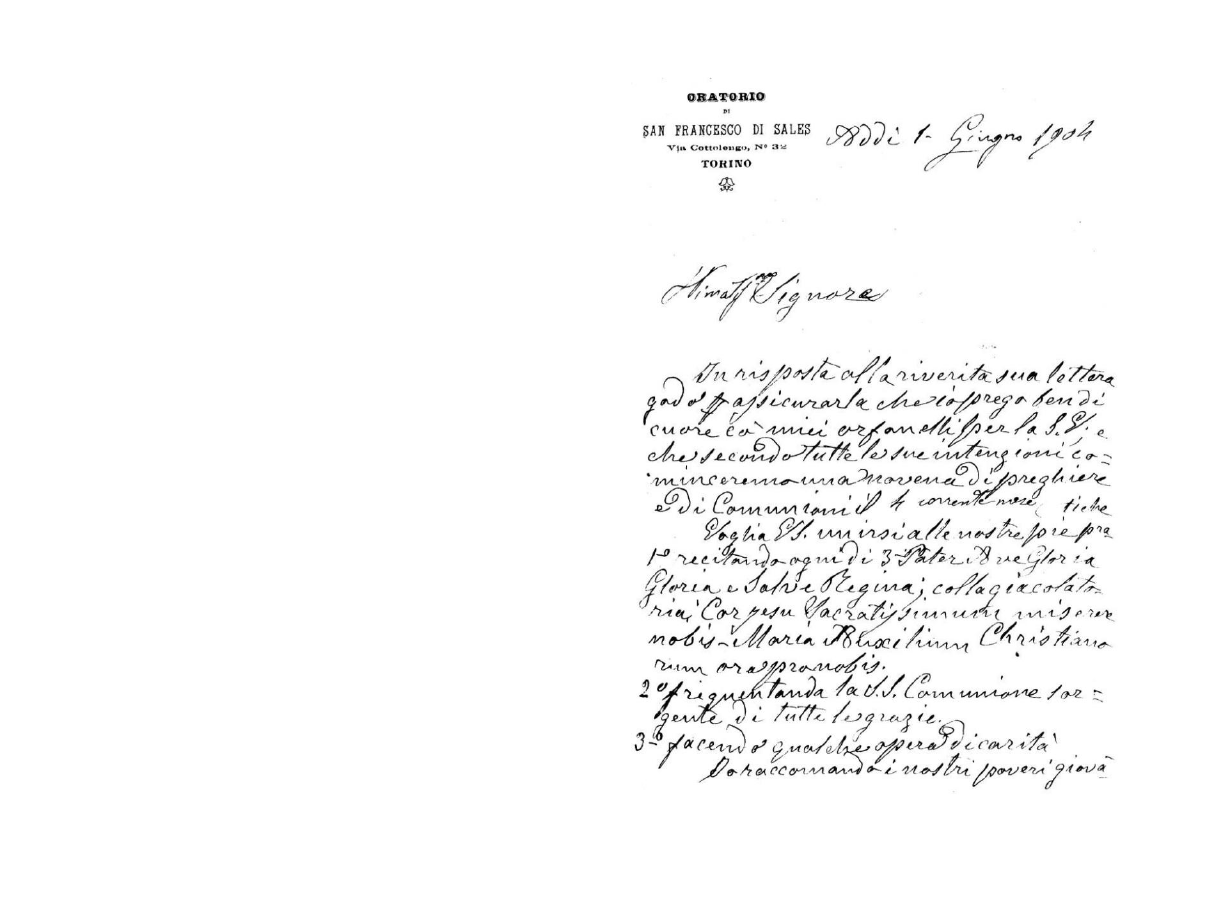 ORATORIO
DI
SAN FRANCESCO DI SALES
Via Cottolengo, Nº 32
TORINO
Addì 1- Giugno 1904
Signore
In risposta alla riverita sua lettera
godo assicurarla che io prego ben di
cuore co' miei orfanelli per la S.V. e
che secondo tutte le sue intenzioni co=
minceremo una novena di preghiere
e di Comunioni il 4 corrente mese
Voglia V.S. unirsi alle nostre pie pra
tiche
1º recitando ogni di 3 Pater Ave Gloria
Gloria e Salve Regina; colla giacolato-
ria; Cor Jesu Sacratissimum miserere
nobis - Maria Auxilium Christiano
rum ora pro nobis.
2º friquentanda la S.S. Comunione sor=
gente di tutte le grazie.
3º facendo qualche opera di carità
raccomando i nostri poveri giovã